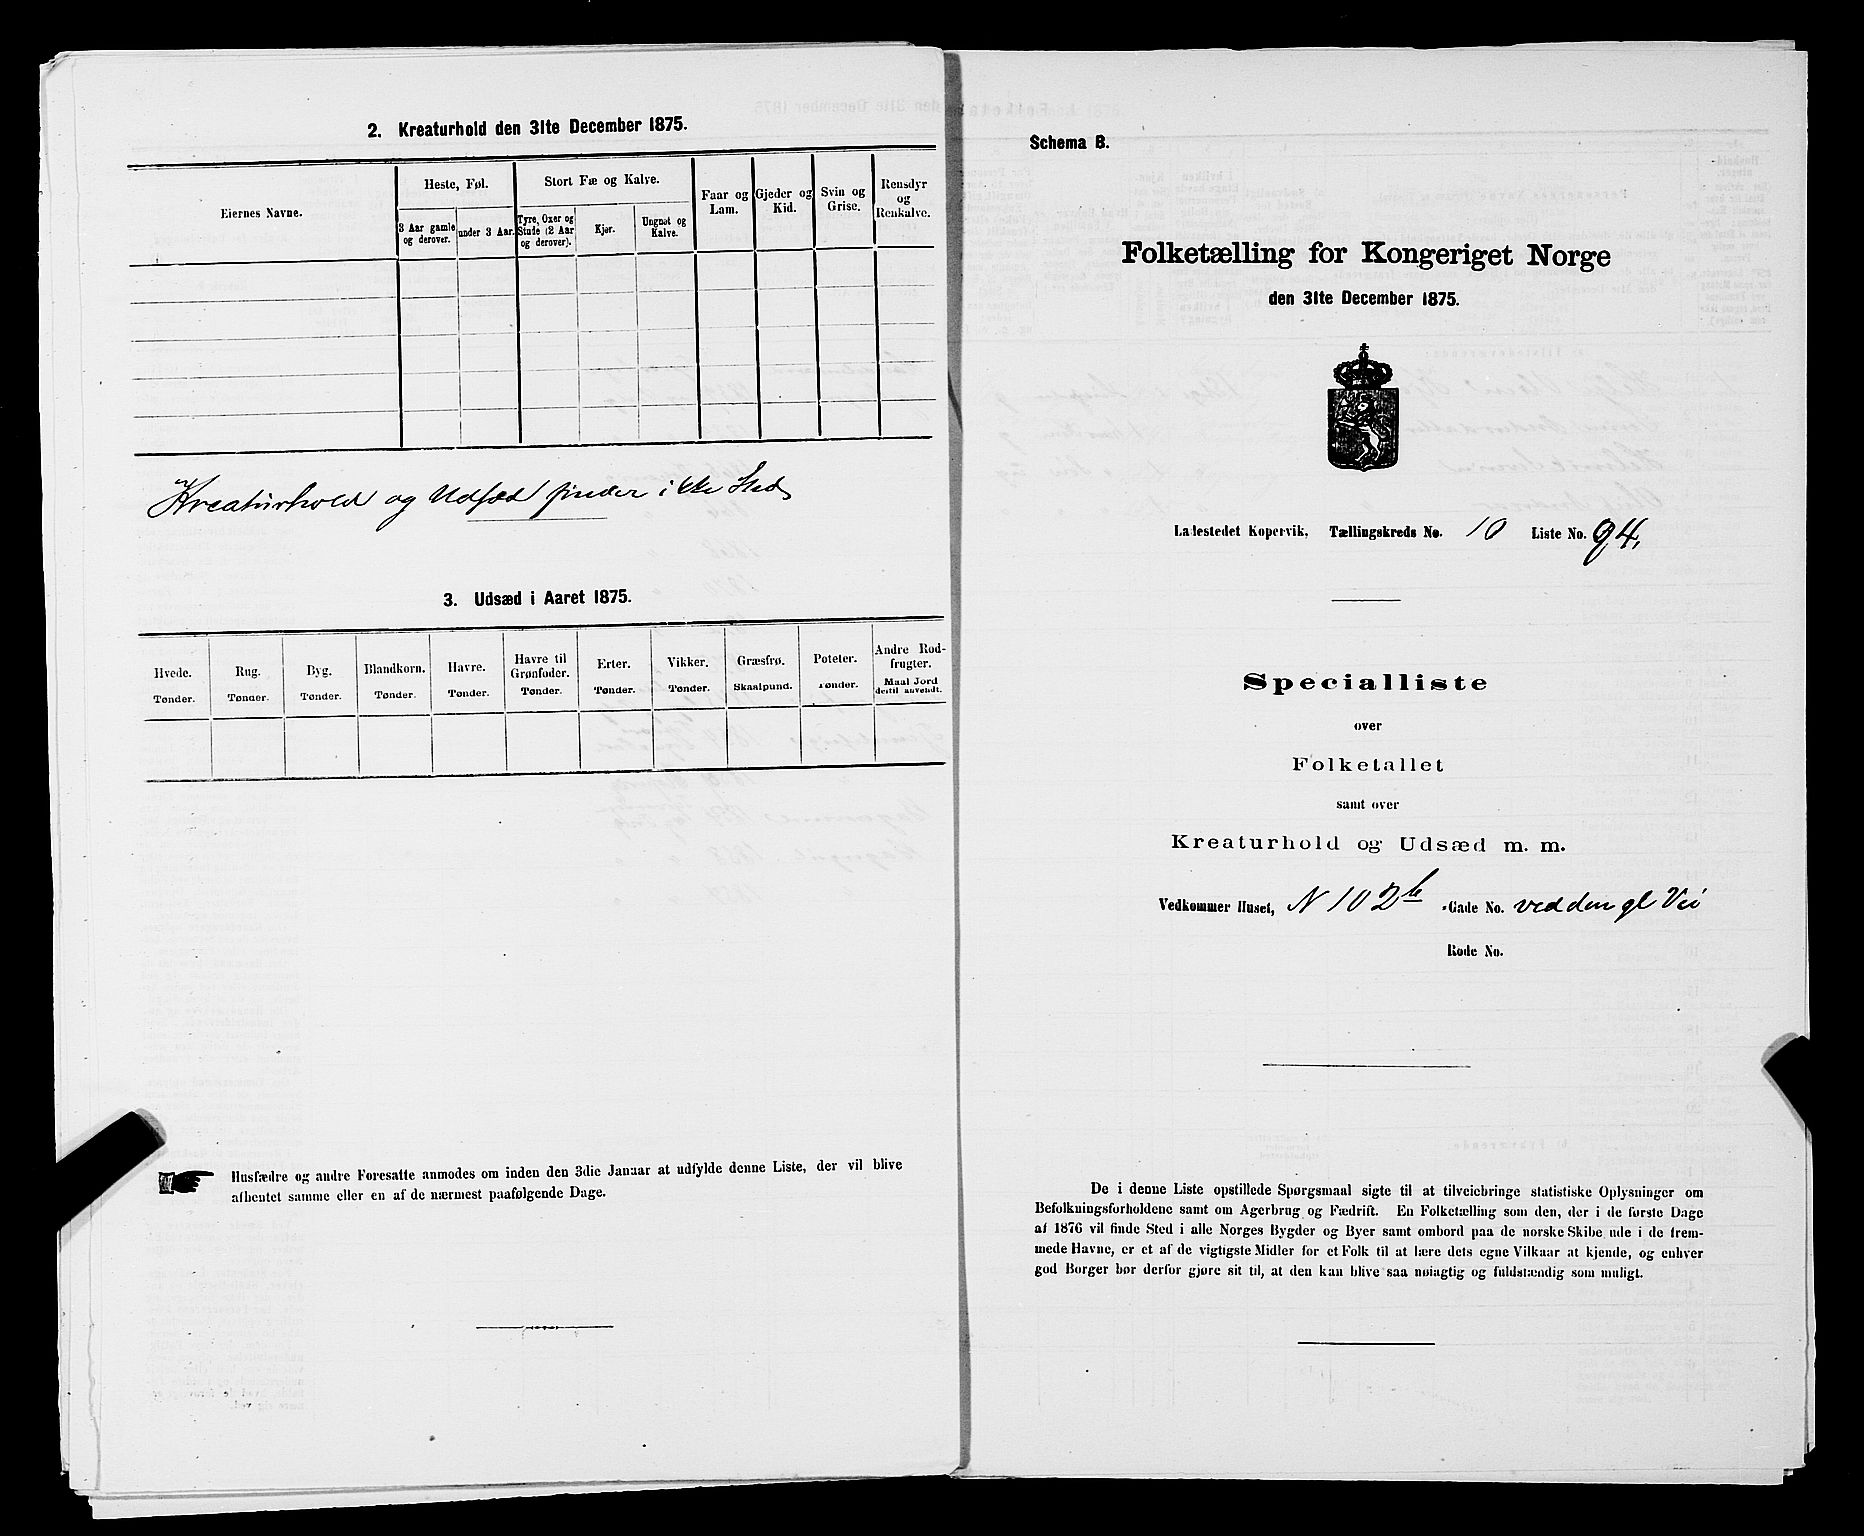 2. Kreaturhold den 31te December 1875.
Eiernes Navne.
Heste, Føl.
Stort Fæ og Kalve.
3 Aar gamle og derover.
under 3 Aar.
Tyre, Oxer og Stude (2 Aar og derover).
Kjør.
Ungnøt og Kalve.
Faar og Lam.
Gjeder og Kid.
Svin og Grise.
Rensdyr og Renkalve.
Kreaturhold og Udsæd finder ikke Sted
3. Udsæd i Aaret 1875.
Hvede. Tønder.
Rug. Tønder.
Byg. Tønder.
Blandkorn. Tønder.
Havre. Tønder.
Havre til Grønfoder. Tønder.
Erter. Tønder.
Vikker. Tønder.
Græsfrø. Skaalpund.
Poteter. Tønder.
Andre Rodfrugter. Maal Jord dertil anvendt.
Husfædre og andre Foresatte anmodes om inden den 3die Januar at udfylde denne Liste, der vil blive
afhentet samme eller en af de nærmest paafølgende Dage.
Schema B.
Folketælling for Kongeriget Norge
den 31te December 1875.
Ladestedet Kopervik, Tællingskreds No. 10 Liste No. 94,
Specialliste
over
Folketallet
samt over
Kreaturhold og Udsæd m. m.
Vedkommer Huset, N 102b -Gade No. ved den gl Vei
Rode No.
De i denne Liste opstillede Spørgsmaal sigte til at tilveiebringe statistiske Oplysninger om
Befolkningsforholdene samt om Agerbrug og Fædrift. En Folketælling som den, der i de første Dage
af 1876 vil finde Sted i alle Norges Bygder og Byer samt ombord paa de norske Skibe ude i de frem-
mede Havne, er et af de vigtigste Midler for et Folk til at lære dets egne Vilkaar at kjende, og enhver
god Borger bør derfor gjøre sit til, at den kan blive saa nøiagtig og fuldstændig som muligt.